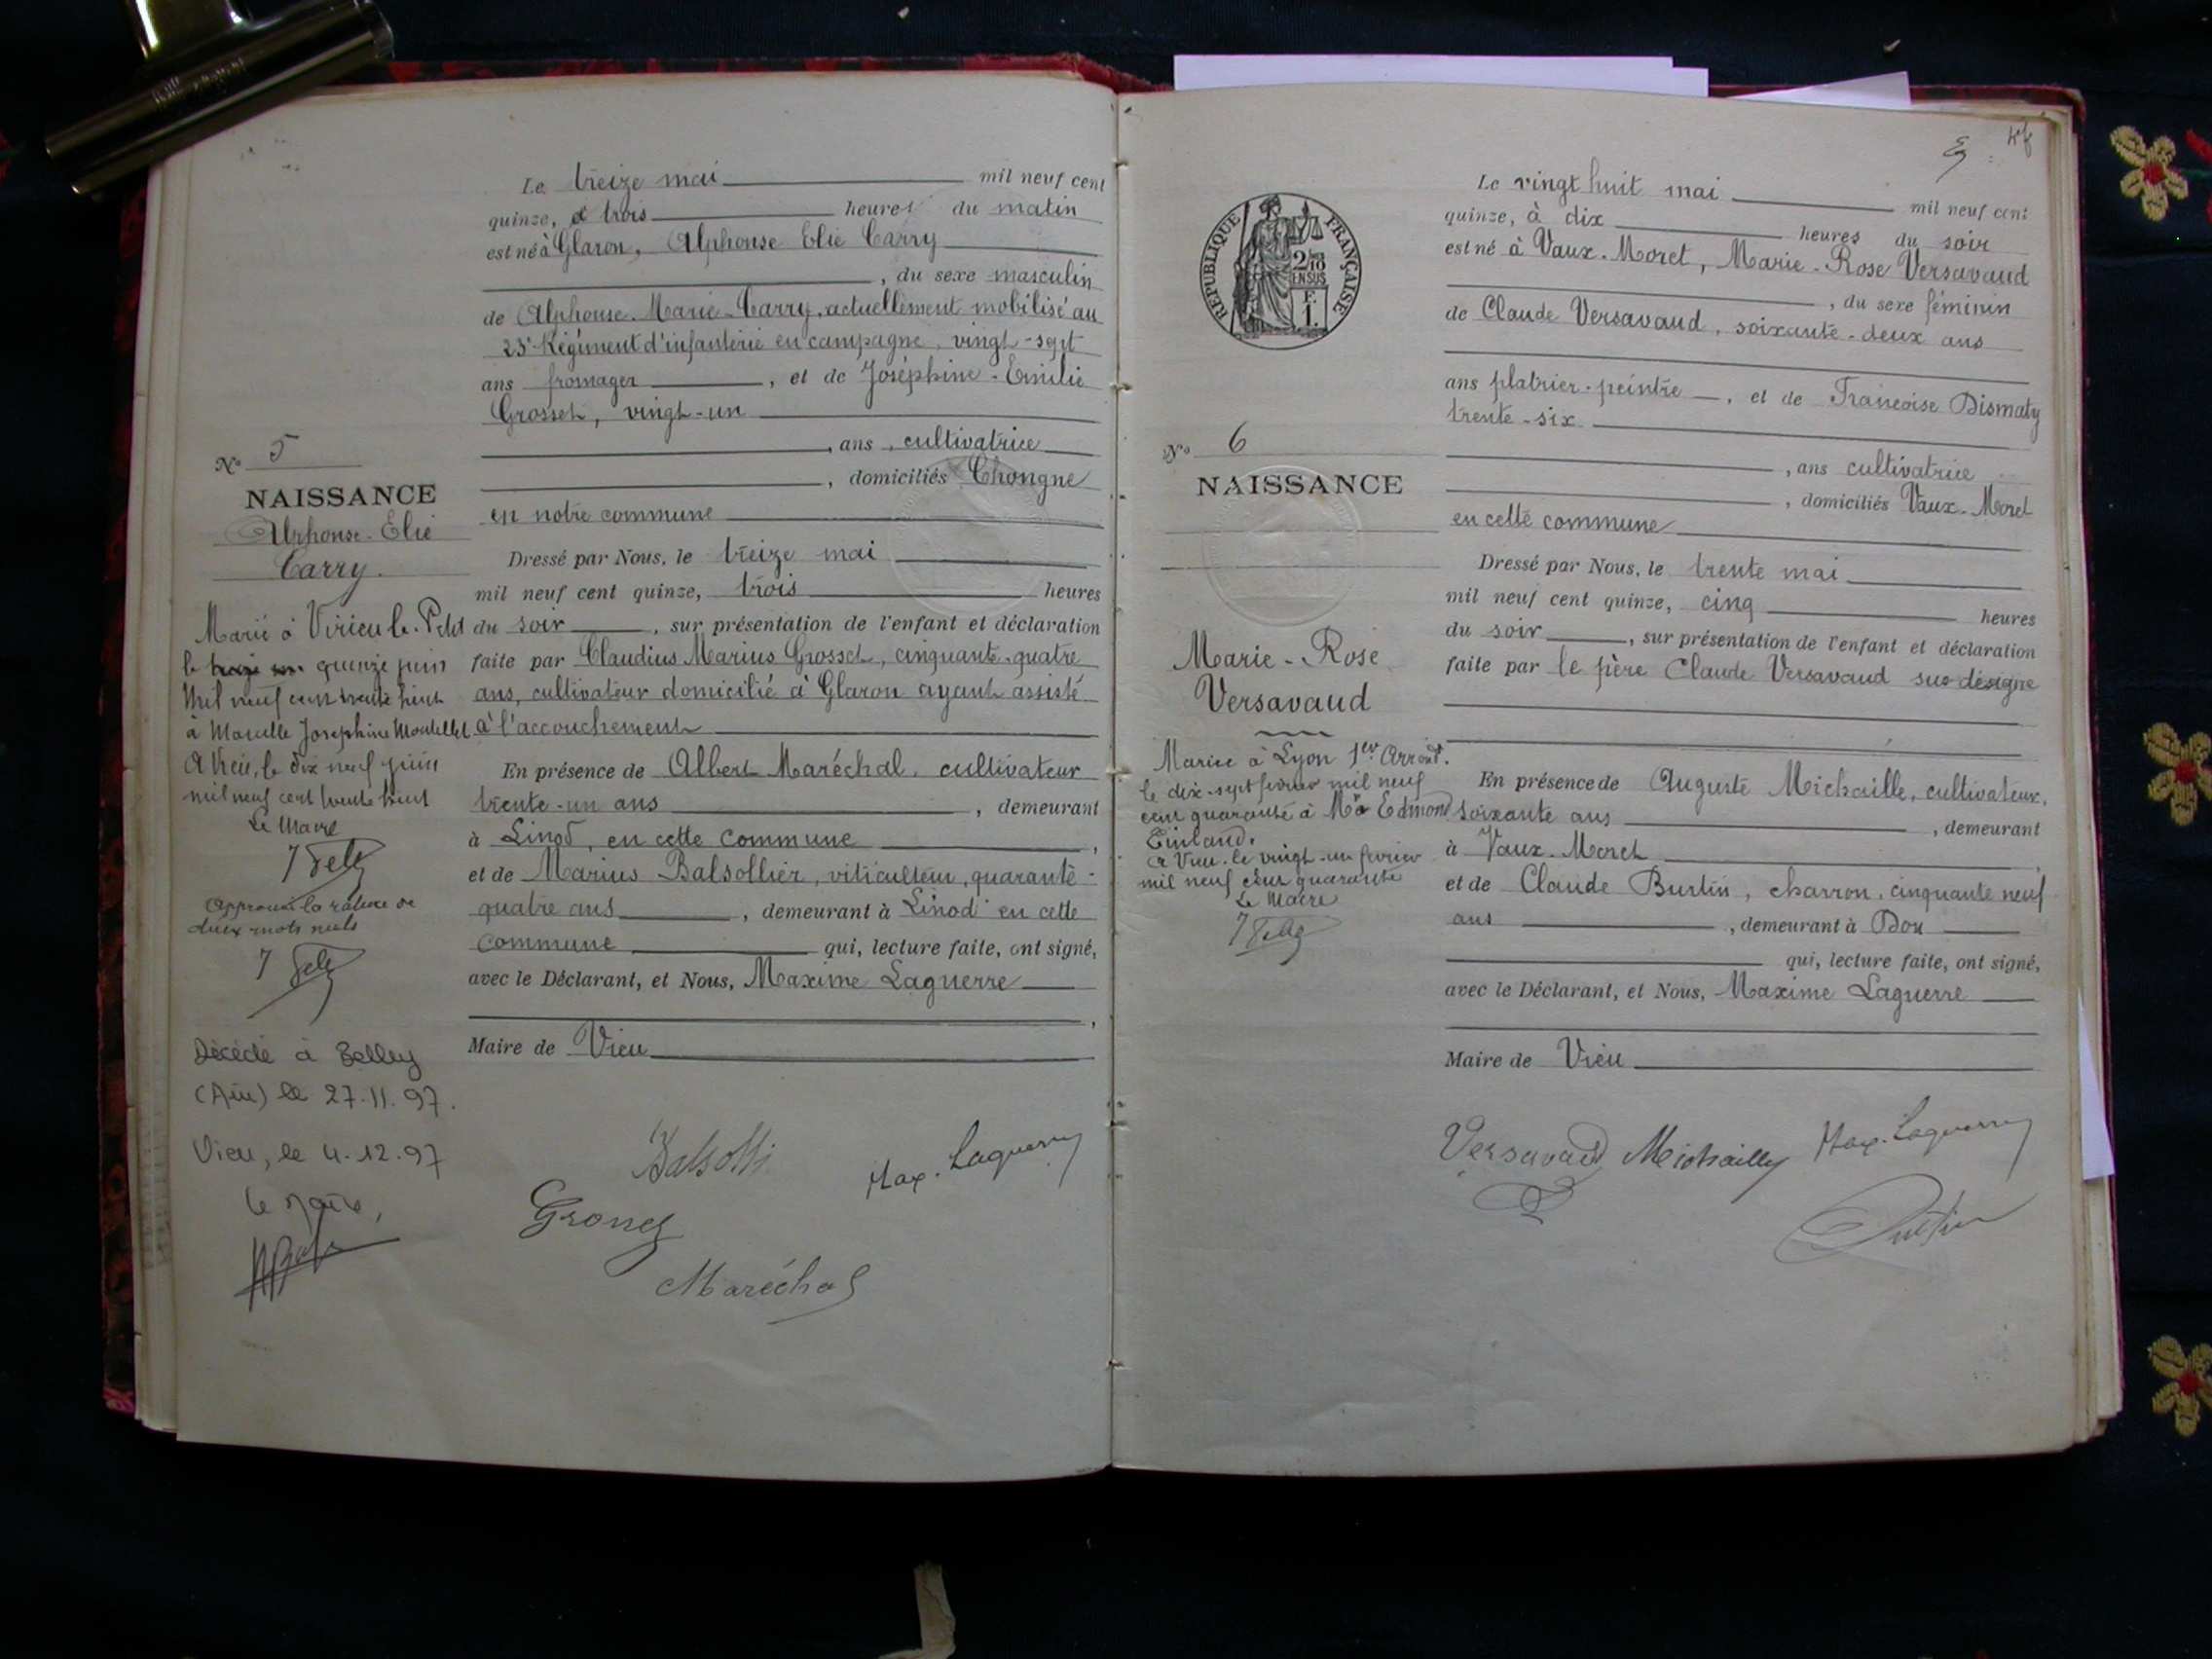 Le treize mai mil neuf cent
quinze, à trois heures du matin
est né à Glaron, Alphonse Elie Carry
, du sexe masculin
de Alphonse-Marie Carry, actuellement mobilisé au
23e Régiment d'infanterie en campagne, vingt-sept
ans fromager, et de Joséphine-Emilie
Grosset, vingt-un
, ans, cultivatrice
, domiciliés Chongne
en notre commune
Dressé par Nous, le treize mai
mil neuf cent quinze, trois heures
du soir, sur présentation de l'enfant et déclaration
faite par Claudius Marius Grosset, cinquante-quatre
ans, cultivateur domicilié à Glaron ayant assisté
à l'accouchement
En présence de Albert Maréchal, cultivateur
trente-un ans, demeurant
à Linod, en cette commune,
et de Marius Balsollier, viticulteur, quarante-
quatre ans, demeurant à Linod en cette
commune qui, lecture faite, ont signé,
avec le Déclarant, et Nous, Maxime Laguerre
,
Maire de Vieu
Max. Laguerre
Maréchal
No 5
NAISSANCE
Alphonse-Elie
Carry.
Marié à Virieu le-Petit
le quinze juin
mil neuf cent trente huit
à Marcelle Joséphine
A Vieu, le dix neuf juin
mil neuf cent trente huit
Le Maire
Approuvé la rature de
deux mots nuls
Décédé à Belley
(Ain) le 27.11.97.
Vieu, le 4.12.97
Le Maire,
RÉPUBLIQUE FRANÇAISE
2/10
EN SUS
F.
1.
Le vingt huit mai mil neuf cent
quinze, à dix heures du soir
est né à Vaux-Moret, Marie-Rose Versavaud
, du sexe féminin
de Claude Versavaud, soixante-deux ans
ans platrier-peintre, et de Françoise Dismaty
trente-six
, ans cultivatrice
, domiciliés Vaux-Moret
en cette commune
Dressé par Nous, le trente mai
mil neuf cent quinze, cinq heures
du soir, sur présentation de l'enfant et déclaration
faite par le père Claude Versavaud sus désigné
En présence de Auguste Michaille, cultivateur,
soixante ans, demeurant
à Vaux-Moret,
et de Claude Burtin, charron, cinquante neuf
ans, demeurant à Don
qui, lecture faite, ont signé,
avec le Déclarant, et Nous, Maxime Laguerre
Maire de Vieu
Versavaud Michailly Max. Laguerre
No 6
NAISSANCE
Marie-Rose
Versavaud
Mariée à Lyon 1er Arrondt.
le dix-sept février mil neuf
cent quarante à Edmond
A Vieu le vingt-un février
mil neuf cent quarante
Le Maire